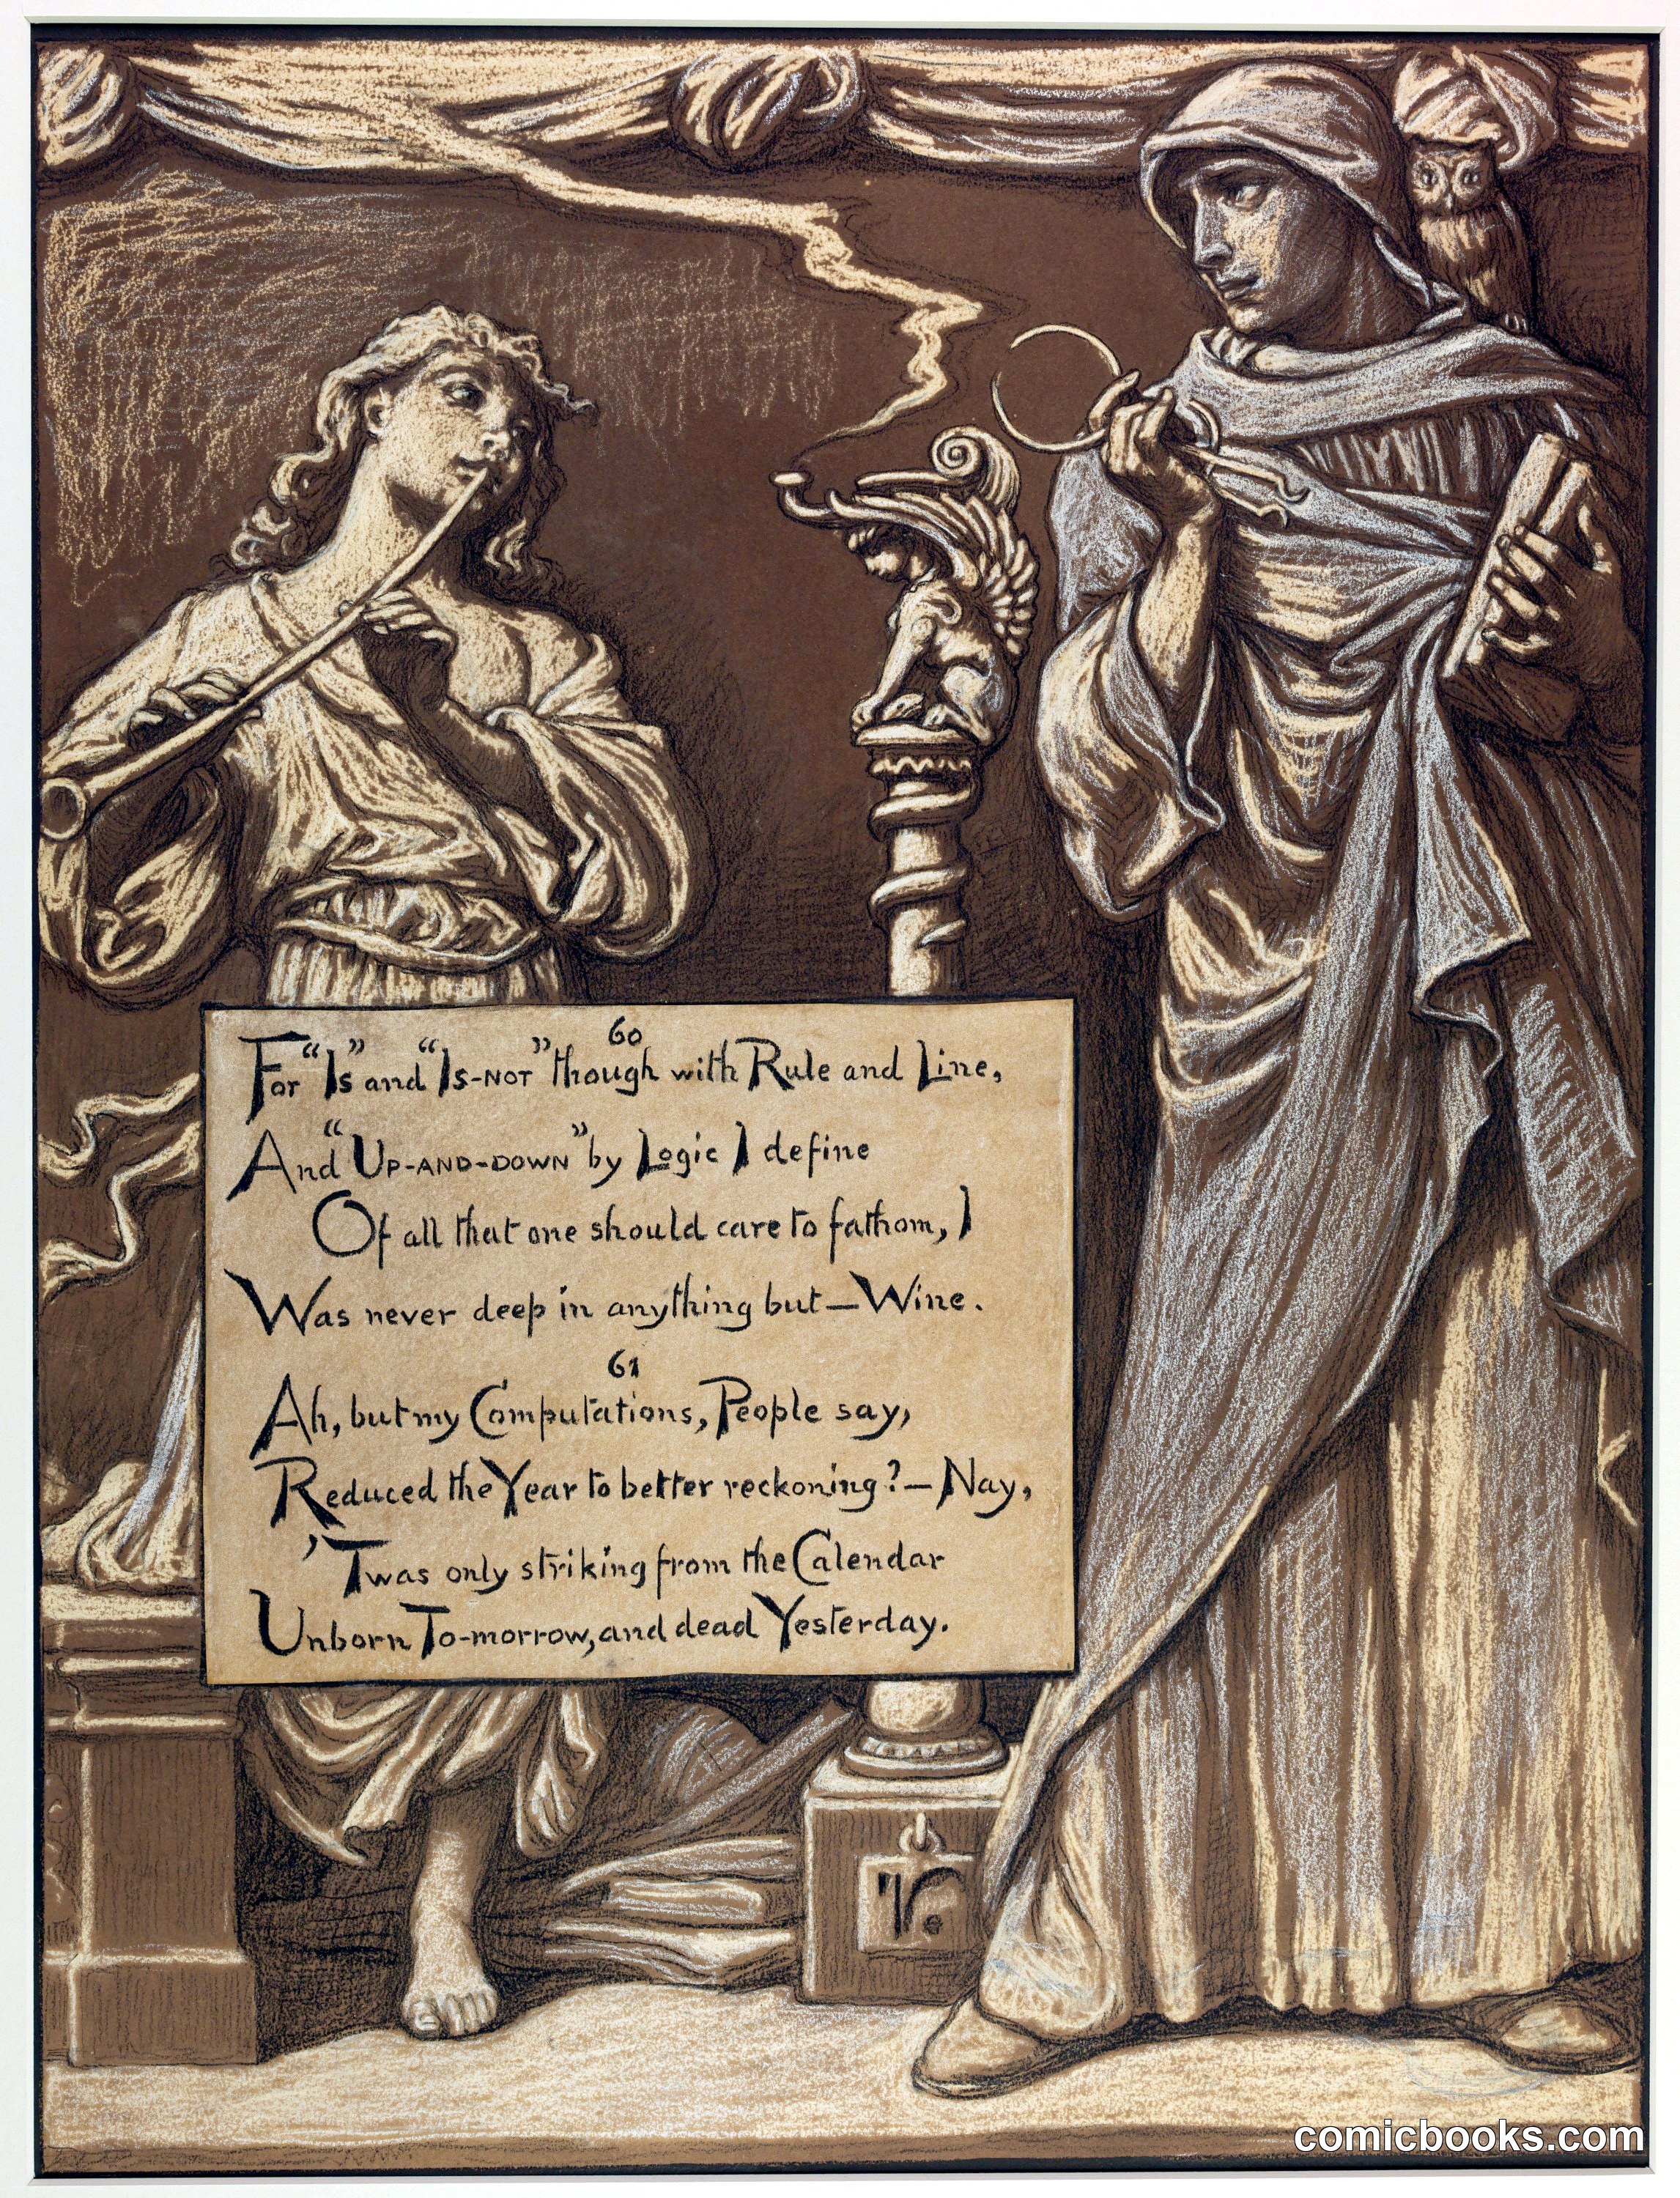 60
For "Is" and "Is-not" though with Rule and Line,
And "Up-and-down" by Logic I define
Of all that one should care to fathom, I
Was never deep in anything but — Wine.
61
Ah, but my Computations, People say,
Reduced the Year to better reckoning? — Nay,
'Twas only striking from the Calendar
Unborn To-morrow, and dead Yesterday.
comicbooks.com